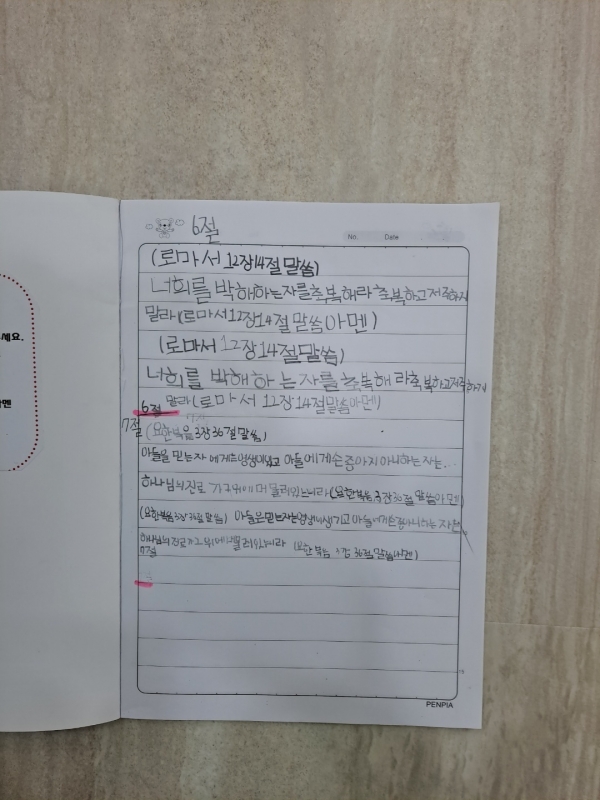 6절
No. Date
(로마서 12장14절 말씀)
너희를 박해하는자를축복해라 축복하고 저주하지
말라(로마서12장14절 말씀아멘)
(로마서 12장14절말씀)
너희를 박해하는자를 축복해라축복하고저주하지
6절 말라(로마서 12장14절말씀아멘)
7절 (요한복음 3장36절 말씀)
아들을 믿는자에게는영생이있고 아들에게순종하지아니하는자는..
하나님의진로 가 그위에 머물러있느니라(요한복음 3장36절 말씀아멘)
(요한복음 3장36절 말씀) 아들을믿는자는영생이생기고 아들에게순종아니하는 자는
하나님의진로가그위에머물러있느니라 (요한복음 3장 36절말씀아멘)
7절
세요.
아멘
PENPIA